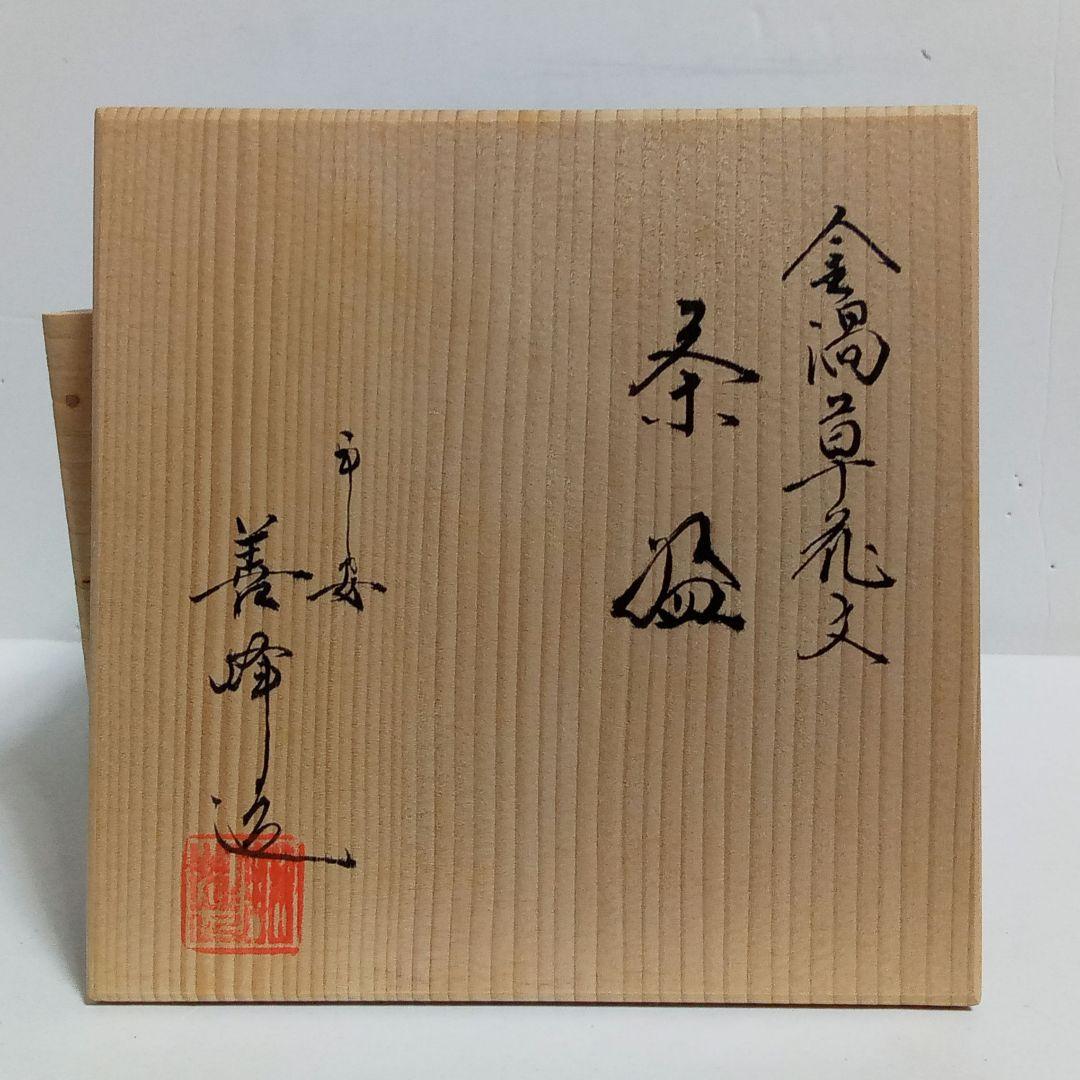 金渦草花文
茶盌
平安
善峰造